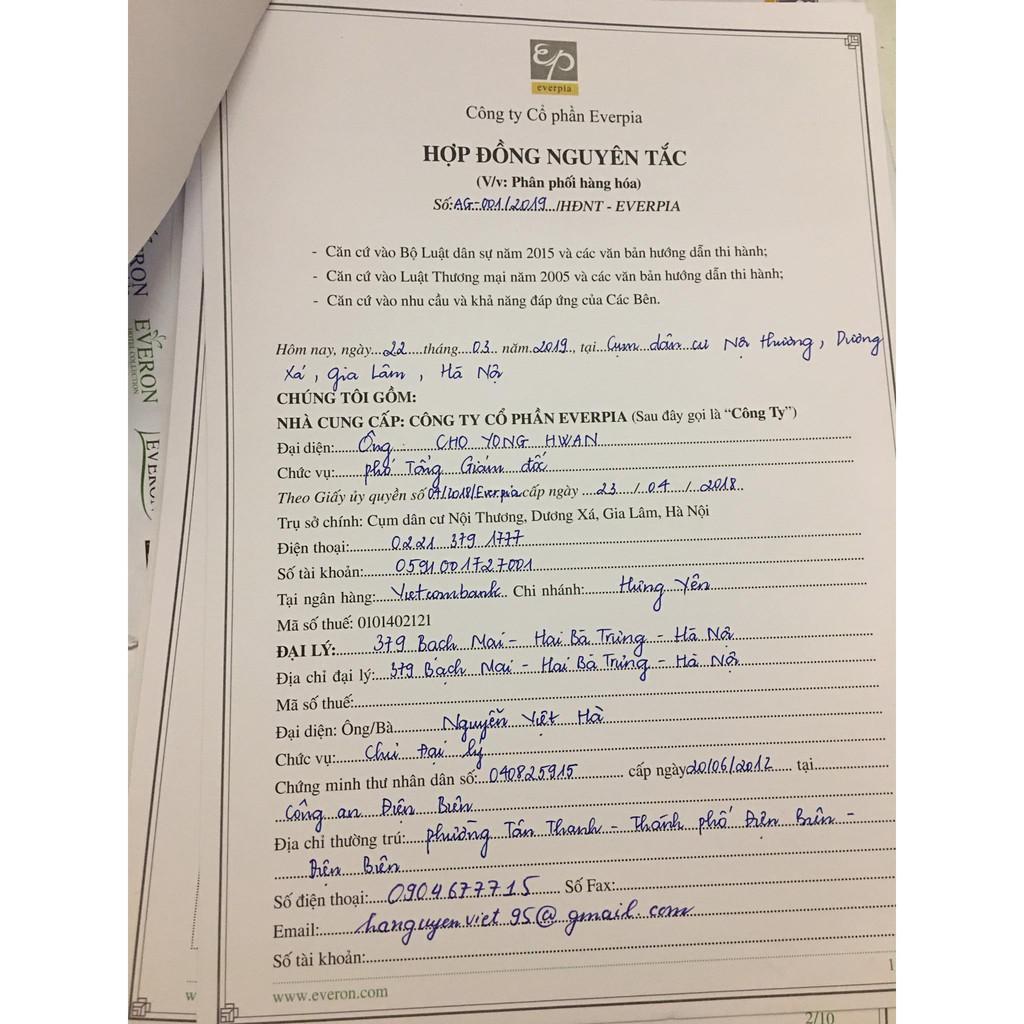 everpia
Công ty Cổ phần Everpia
HỢP ĐỒNG NGUYÊN TẮC
(V/v: Phân phối hàng hóa)
Số:AG-001/2019../HĐNT - EVERPIA
- Căn cứ vào Bộ Luật dân sự năm 2015 và các văn bản hướng dẫn thi hành;
- Căn cứ vào Luật Thương mại năm 2005 và các văn bản hướng dẫn thi hành;
- Căn cứ vào nhu cầu và khả năng đáp ứng của Các Bên.
Hôm nay, ngày...22....tháng...03.. năm.2019., tại...Cụm dân cư Nội thương, Dương
Xá, Gia Lâm, Hà Nội
CHÚNG TÔI GỒM:
NHÀ CUNG CẤP: CÔNG TY CỔ PHẦN EVERPIA (Sau đây gọi là “Công Ty”)
Đại diện:....Ông CHO YONG HWAN
Chức vụ:....phó Tổng Giám đốc
Theo Giấy ủy quyền số 04/2018/Everpia cấp ngày ....23..../..04.../...2018..
Trụ sở chính: Cụm dân cư Nội Thương, Dương Xá, Gia Lâm, Hà Nội
Điện thoại:....0221 379 1777
Số tài khoản:....0591001727001
Tại ngân hàng:...Vietcombank.. Chi nhánh:....Hưng Yên
Mã số thuế: 0101402121
ĐẠI LÝ:....379 Bạch Mai - Hai Bà Trưng - Hà Nội
Địa chỉ đại lý:..379 Bạch Mai - Hai Bà Trưng - Hà Nội
Mã số thuế:
Đại diện: Ông/Bà....Nguyễn Việt Hà
Chức vụ:....Chủ Đại lý
Chứng minh thư nhân dân số:..040825915.... cấp ngày 20/06/2012.... tại....
Công an Điện Biên
Địa chỉ thường trú:...phường Tân Thanh - Thành phố Điện Biên -
Điện Biên
Số điện thoại:...0904677715.... Số Fax:
Email:....hanguyenviet95@gmail.com
Số tài khoản:
1
www.everon.com
w
2/10
RON
EVERON
HOTEL COLLECTION
EVERON